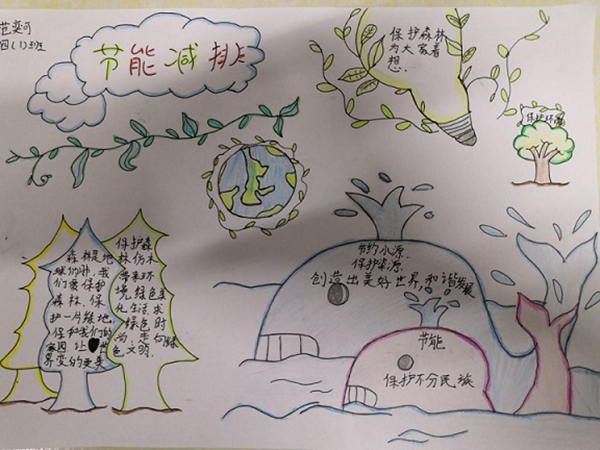 范奕可
四(1)班
节能减排
保护森林
为大家着
想.
保护环境
森林是地
球的肺,我
们要保护
森林,保
护一片绿地,
保护我们的
家园,让世
界变的更美
保护森
林伤木
带来环
境,绿色美
化生活,求
绿色时
尚,走向绿
色文明.
节约水源.
保护资源.
创造出美好世界,和谐发展
节能
保护不分民族